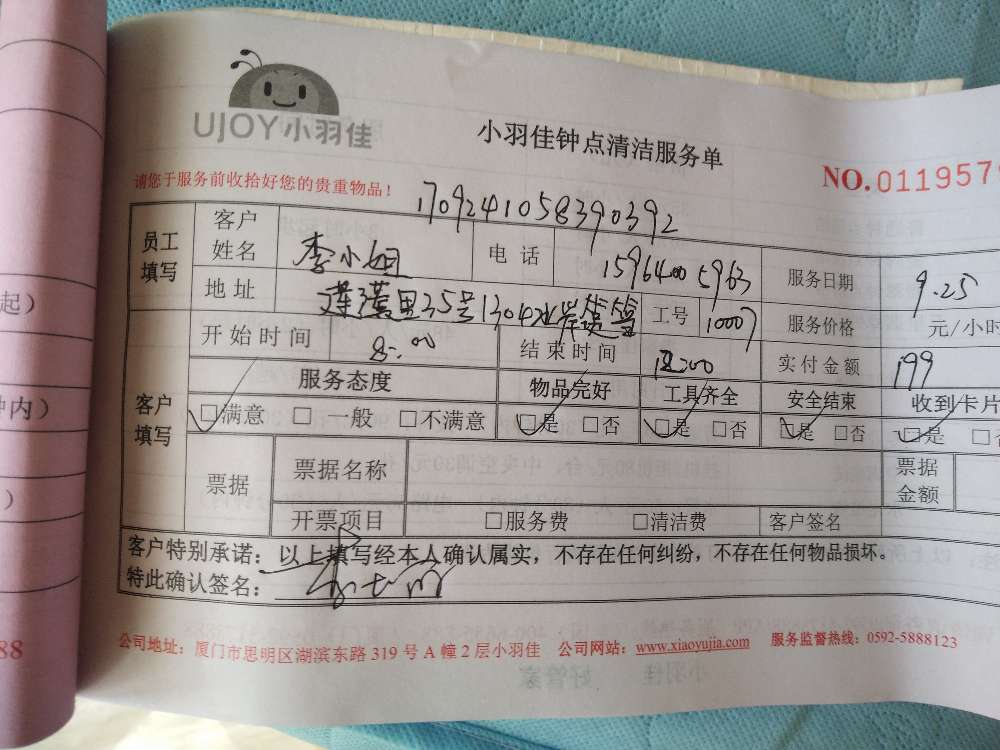 UJOY小羽佳
小羽佳钟点清洁服务单
请您于服务前收拾好您的贵重物品!
NO.0119579
1709241058390392
员工填写 客户姓名 李小姐 电话 15964005963 服务日期 9.25
地址 莲 里35号1304 工号 10007 服务价格 元/小时
开始时间 8:00 结束时间 实付金额 199
客户填写 服务态度 物品完好 工具齐全 安全结束 收到卡片
☐满意 ☐一般 ☐不满意 ☐是 ☐否 ☐是 ☐否 ☐是 ☐否 ☐是
票据 票据名称 票据金额
开票项目 ☐服务费 ☐清洁费 客户签名
客户特别承诺:以上填写经本人确认属实,不存在任何纠纷,不存在任何物品损坏。
特此确认签名:
公司地址:厦门市思明区湖滨东路 319 号 A 幢 2 层小羽佳 公司网站:www.xiaoyujia.com 服务监督热线:0592-5888123
起)
钟内)
)
88